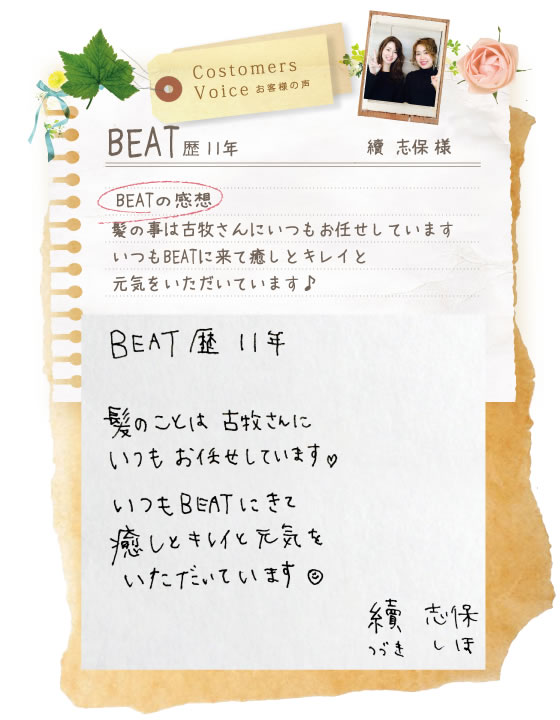 Costomers
Voice お客様の声
BEAT歴11年 續 志保 様
BEATの感想
髪の事は古牧さんにいつもお任せしています
いつもBEATに来て癒しとキレイと
元気をいただいています♪
BEAT 歴 11年
髪のことは 古牧さんに
いつも お任せしています♡
いつもBEATにきて
癒しとキレイと元気を
いただいています☺
續 志保
つづき しほ